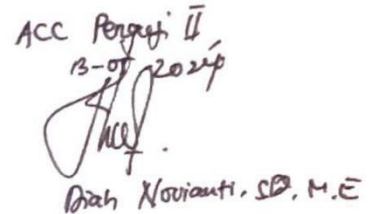 ACC Penguji II
2024
Diah Novianti, S.D, M.E